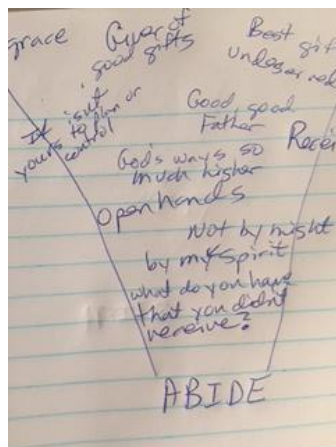 grace
Giver of
good gifts
Best gif
undeserved
It isn't
yours to own or
control
Good, good
Father
Recei
God's ways so
much higher
open hands
Not by might
by my Spirit
what do you have
that you didn't
receive?
ABIDE